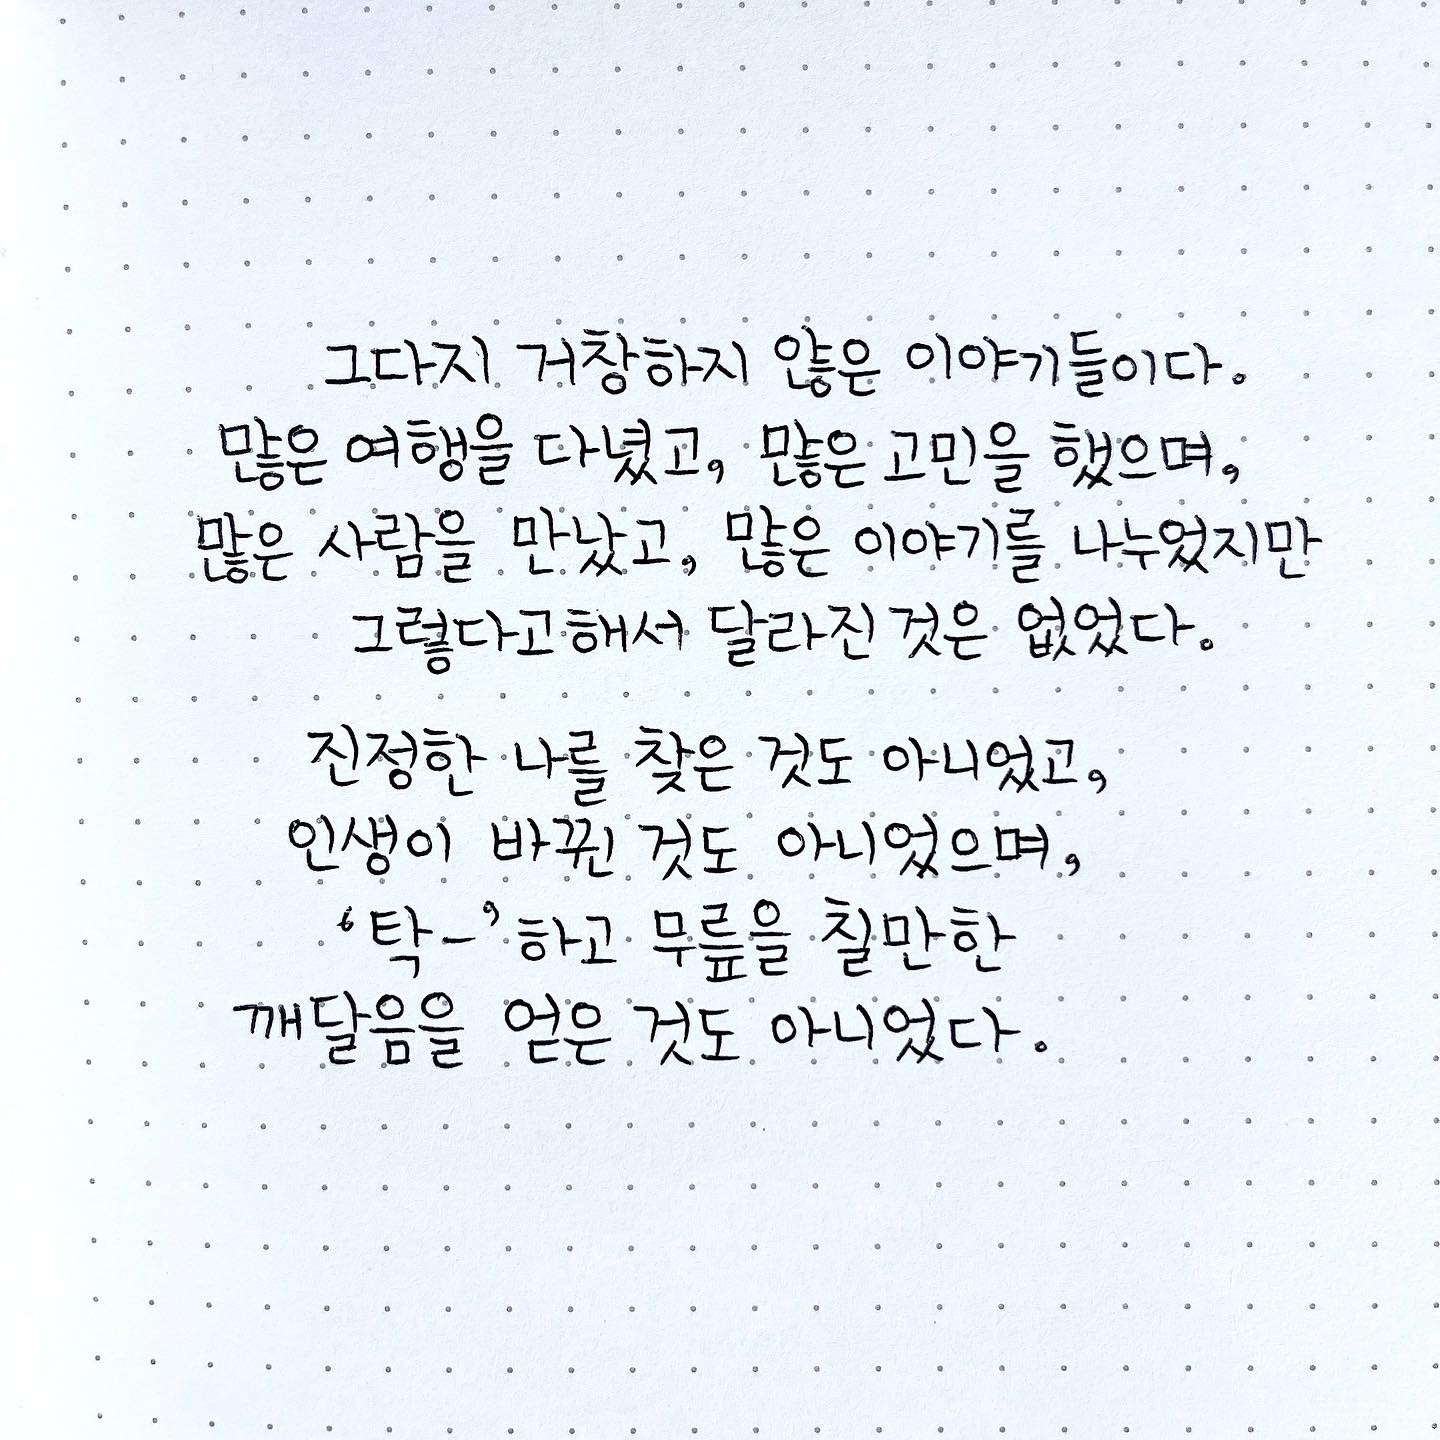 그다지 거창하지 않은 이야기들이다.
많은 여행을 다녔고, 많은 고민을 했으며,
많은 사람을 만났고, 많은 이야기를 나누었지만
그렇다고해서 달라진 것은 없었다.
진정한 나를 찾은 것도 아니었고,
인생이 바뀐 것도 아니었으며,
‘탁-’하고 무릎을 칠만한
깨달음을 얻은 것도 아니었다.